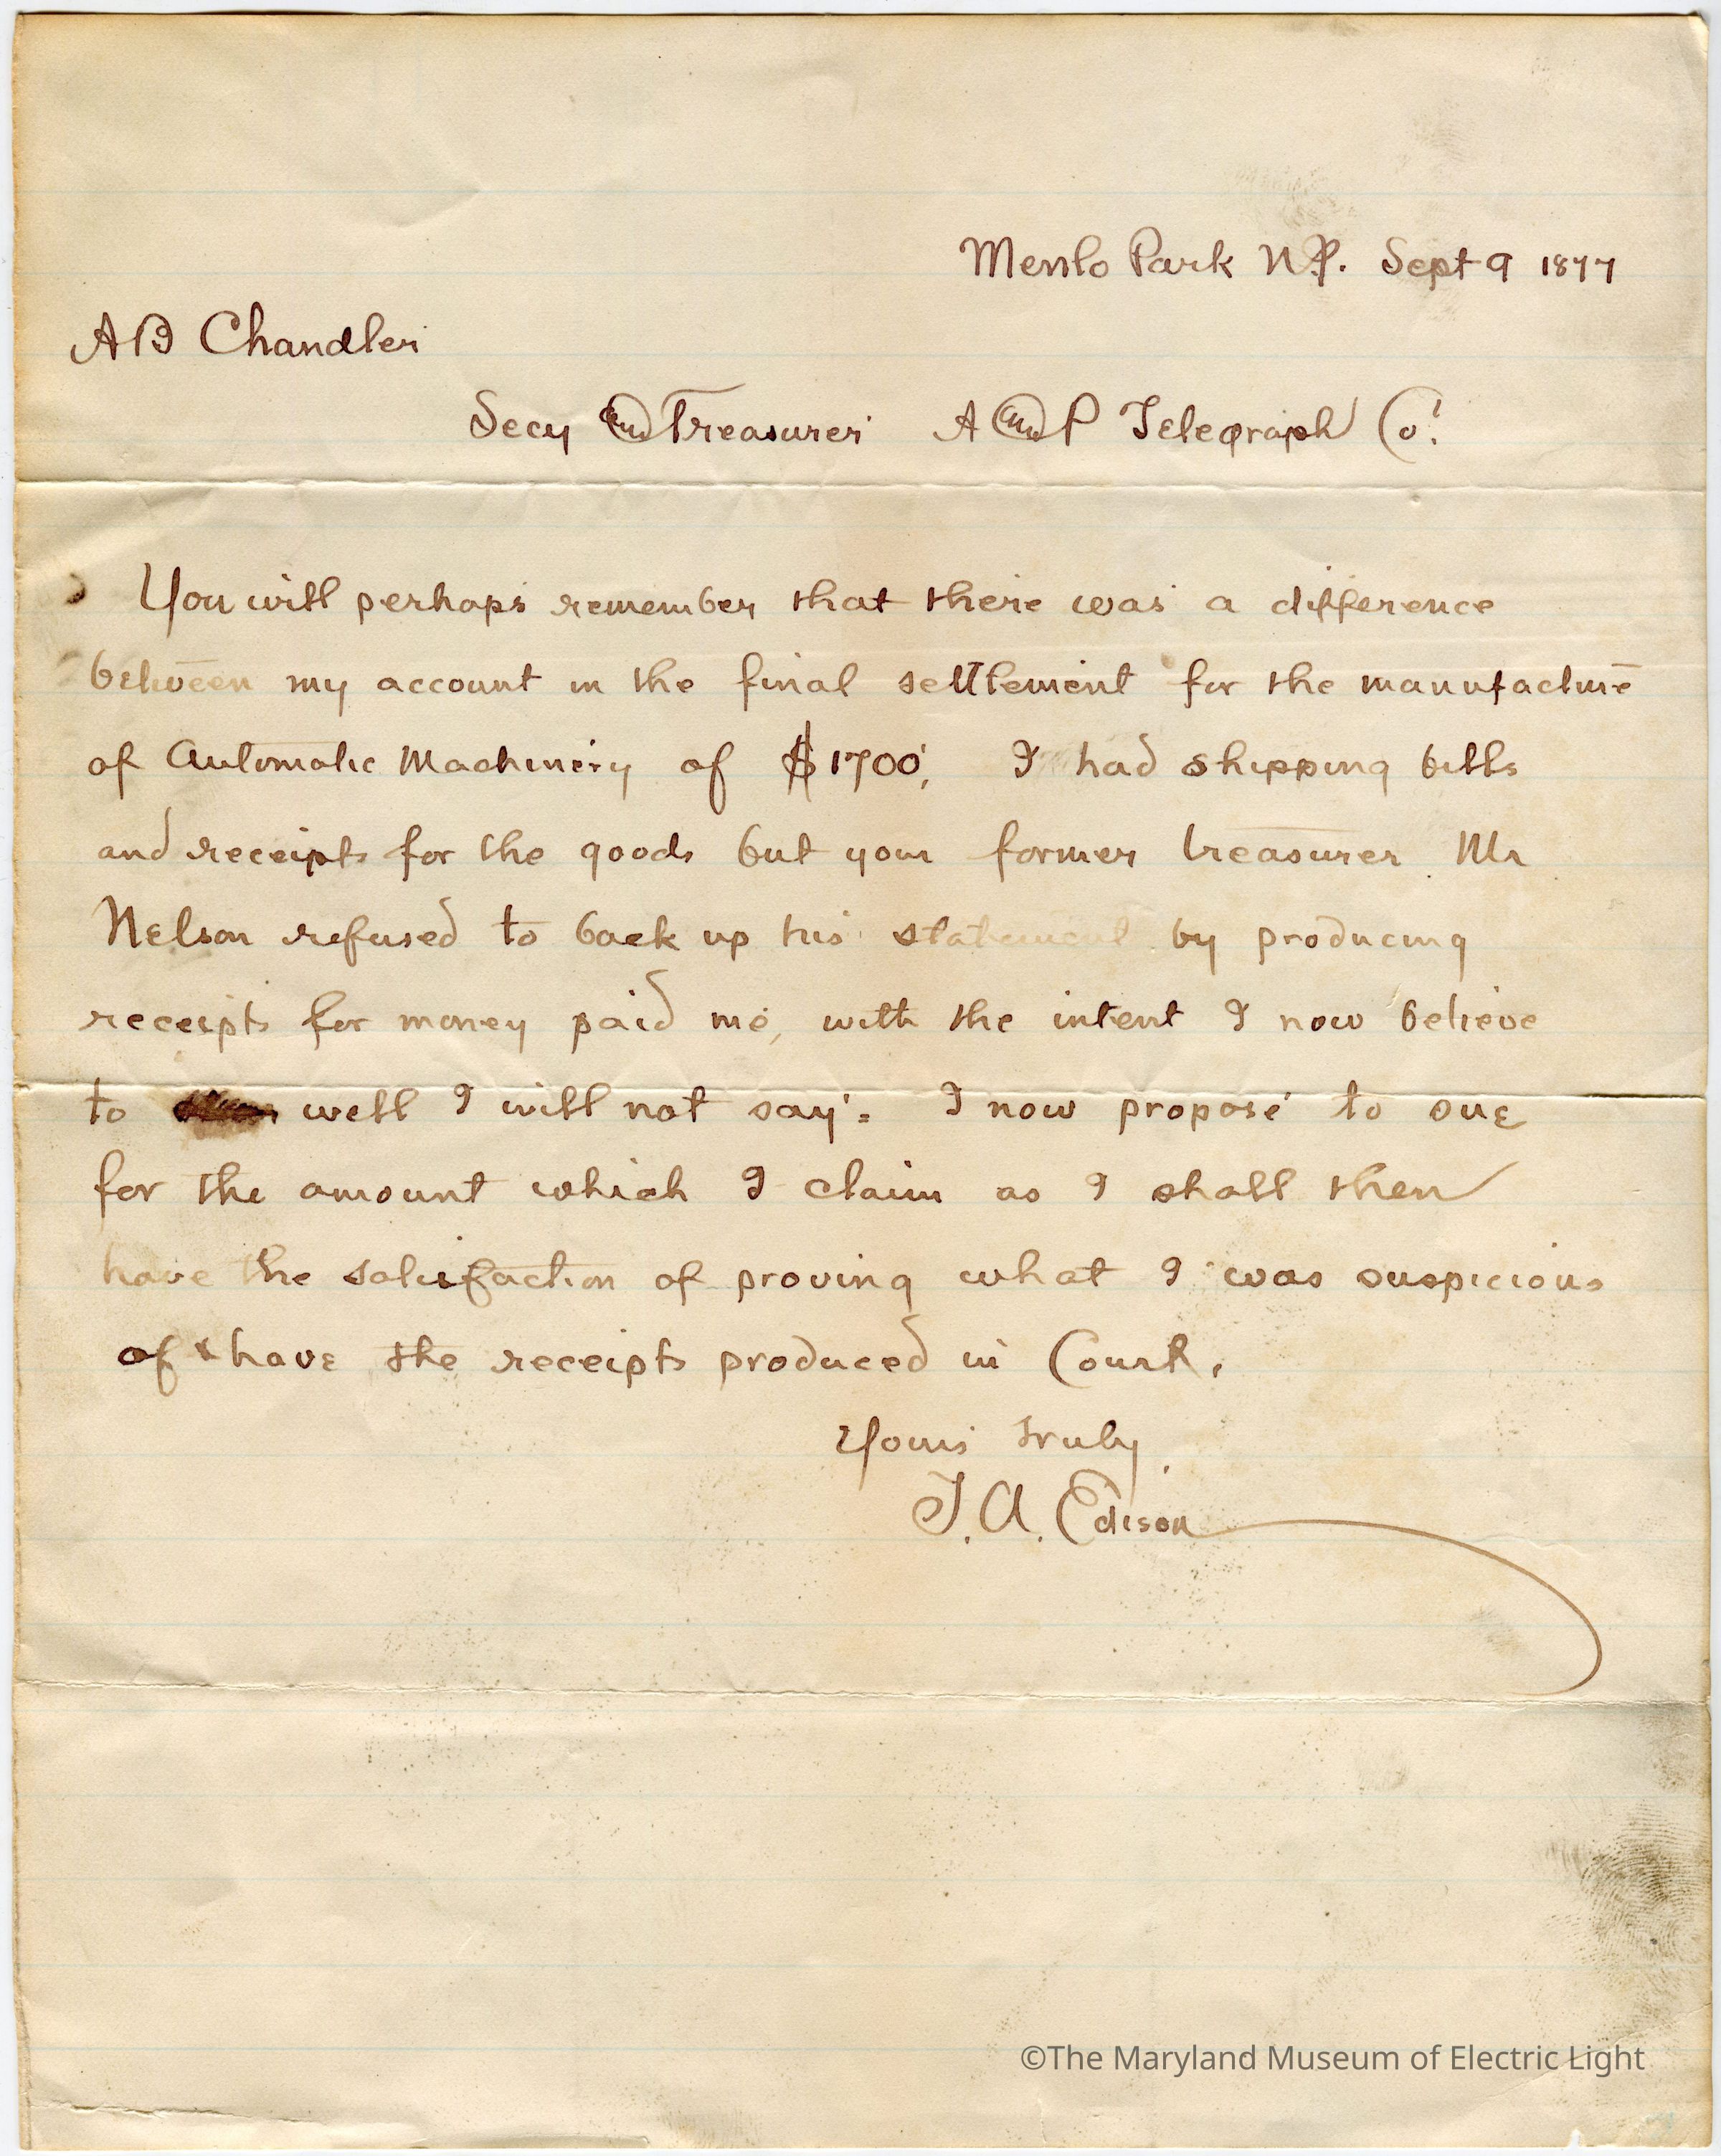 Menlo Park N.J. Sept 9 1877
A B Chandler
Secy and Treasurer A and P Telegraph Co.
You will perhaps remember that there was a difference
between my account in the final settlement for the manufacture
of Automatic Machinery of $1700, I had shipping bills
and receipts for the goods but your former treasurer Mr
Nelson refused to back up his statement by producing
receipts for money paid me, with the intent I now believe
to well I will not say = I now propose to sue
for the amount which I claim as I shall then
have the satisfaction of proving what I was suspicious
of & have the receipts produced in Court.
Yours truly
T. A. Edison
©The Maryland Museum of Electric Light